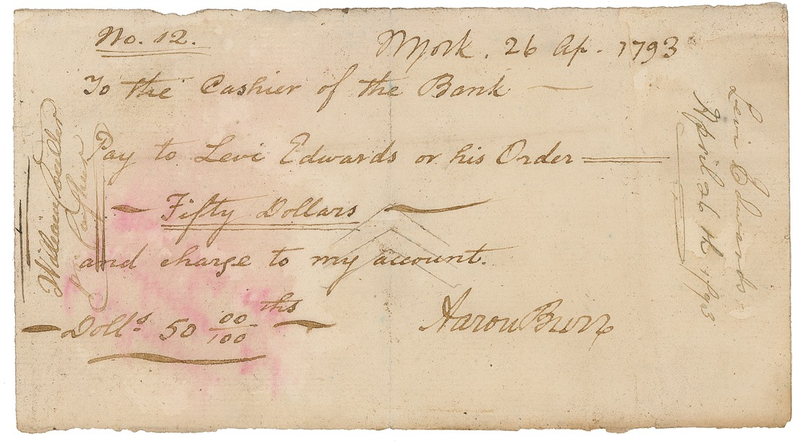 No. 12.
NYork. 26 Ap. 1793
To the Cashier of the Bank
Pay to Levi Edwards or his Order
Fifty Dollars
and charge to my account.
Dolls 50 00/100 ths
Aaron Burr
William
Levi Edwards
April 26th 1793